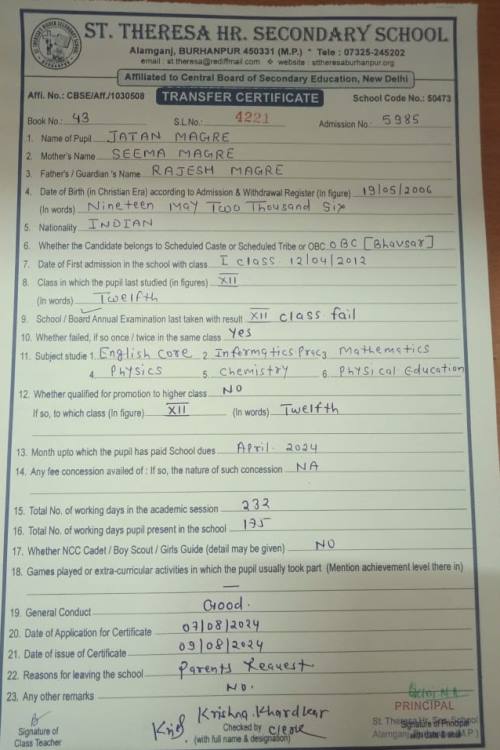 ST. THERESA HR. SECONDARY SCHOOL
Alamganj, BURHANPUR 450331 (M.P.) * Tele : 07325-245202
email : st.theresa@rediffmail.com ❖ website : sttheresaburhanpur.org
Affiliated to Central Board of Secondary Education, New Delhi
Affi. No.: CBSE/Aff./1030508 TRANSFER CERTIFICATE School Code No.: 50473
Book No.: 43 S.L.No.: 4221 Admission No.: 5985
1. Name of Pupil JATAN MAGRE
2. Mother's Name SEEMA MAGRE
3. Father's / Guardian 's Name RAJESH MAGRE
4. Date of Birth (in Christian Era) according to Admission & Withdrawal Register (In figure) 19/05/2006
(In words) Nineteen May Two Thousand Six
5. Nationality INDIAN
6. Whether the Candidate belongs to Scheduled Caste or Scheduled Tribe or OBC OBC [Bhavsar]
7. Date of First admission in the school with class I class 12/04/2012
8. Class in which the pupil last studied (in figures) XII
(In words) Twelfth
9. School / Board Annual Examination last taken with result XII class fail
10. Whether failed, if so once / twice in the same class Yes
11. Subject studie 1. English Core 2. Informatics Prac 3. Mathematics
4. Physics 5. Chemistry 6. Physical Education
12. Whether qualified for promotion to higher class NO
If so, to which class (In figure) XII (In words) Twelfth
13. Month upto which the pupil has paid School dues April. 2024
14. Any fee concession availed of : If so, the nature of such concession NA
15. Total No. of working days in the academic session 232
16. Total No. of working days pupil present in the school 175
17. Whether NCC Cadet / Boy Scout / Girls Guide (detail may be given) NO
18. Games played or extra-curricular activities in which the pupil usually took part (Mention achievement level there in)
—
19. General Conduct Good.
20. Date of Application for Certificate 07/08/2024
21. Date of issue of Certificate 09/08/2024
22. Reasons for leaving the school Parents Request
23. Any other remarks NO.
PRINCIPAL
Krishna. Khardkar
Signature of Checked by Clerk St. Theresa Hr. Sec. School Signature of Principal
Class Teacher (with full name & designation) Alamganj